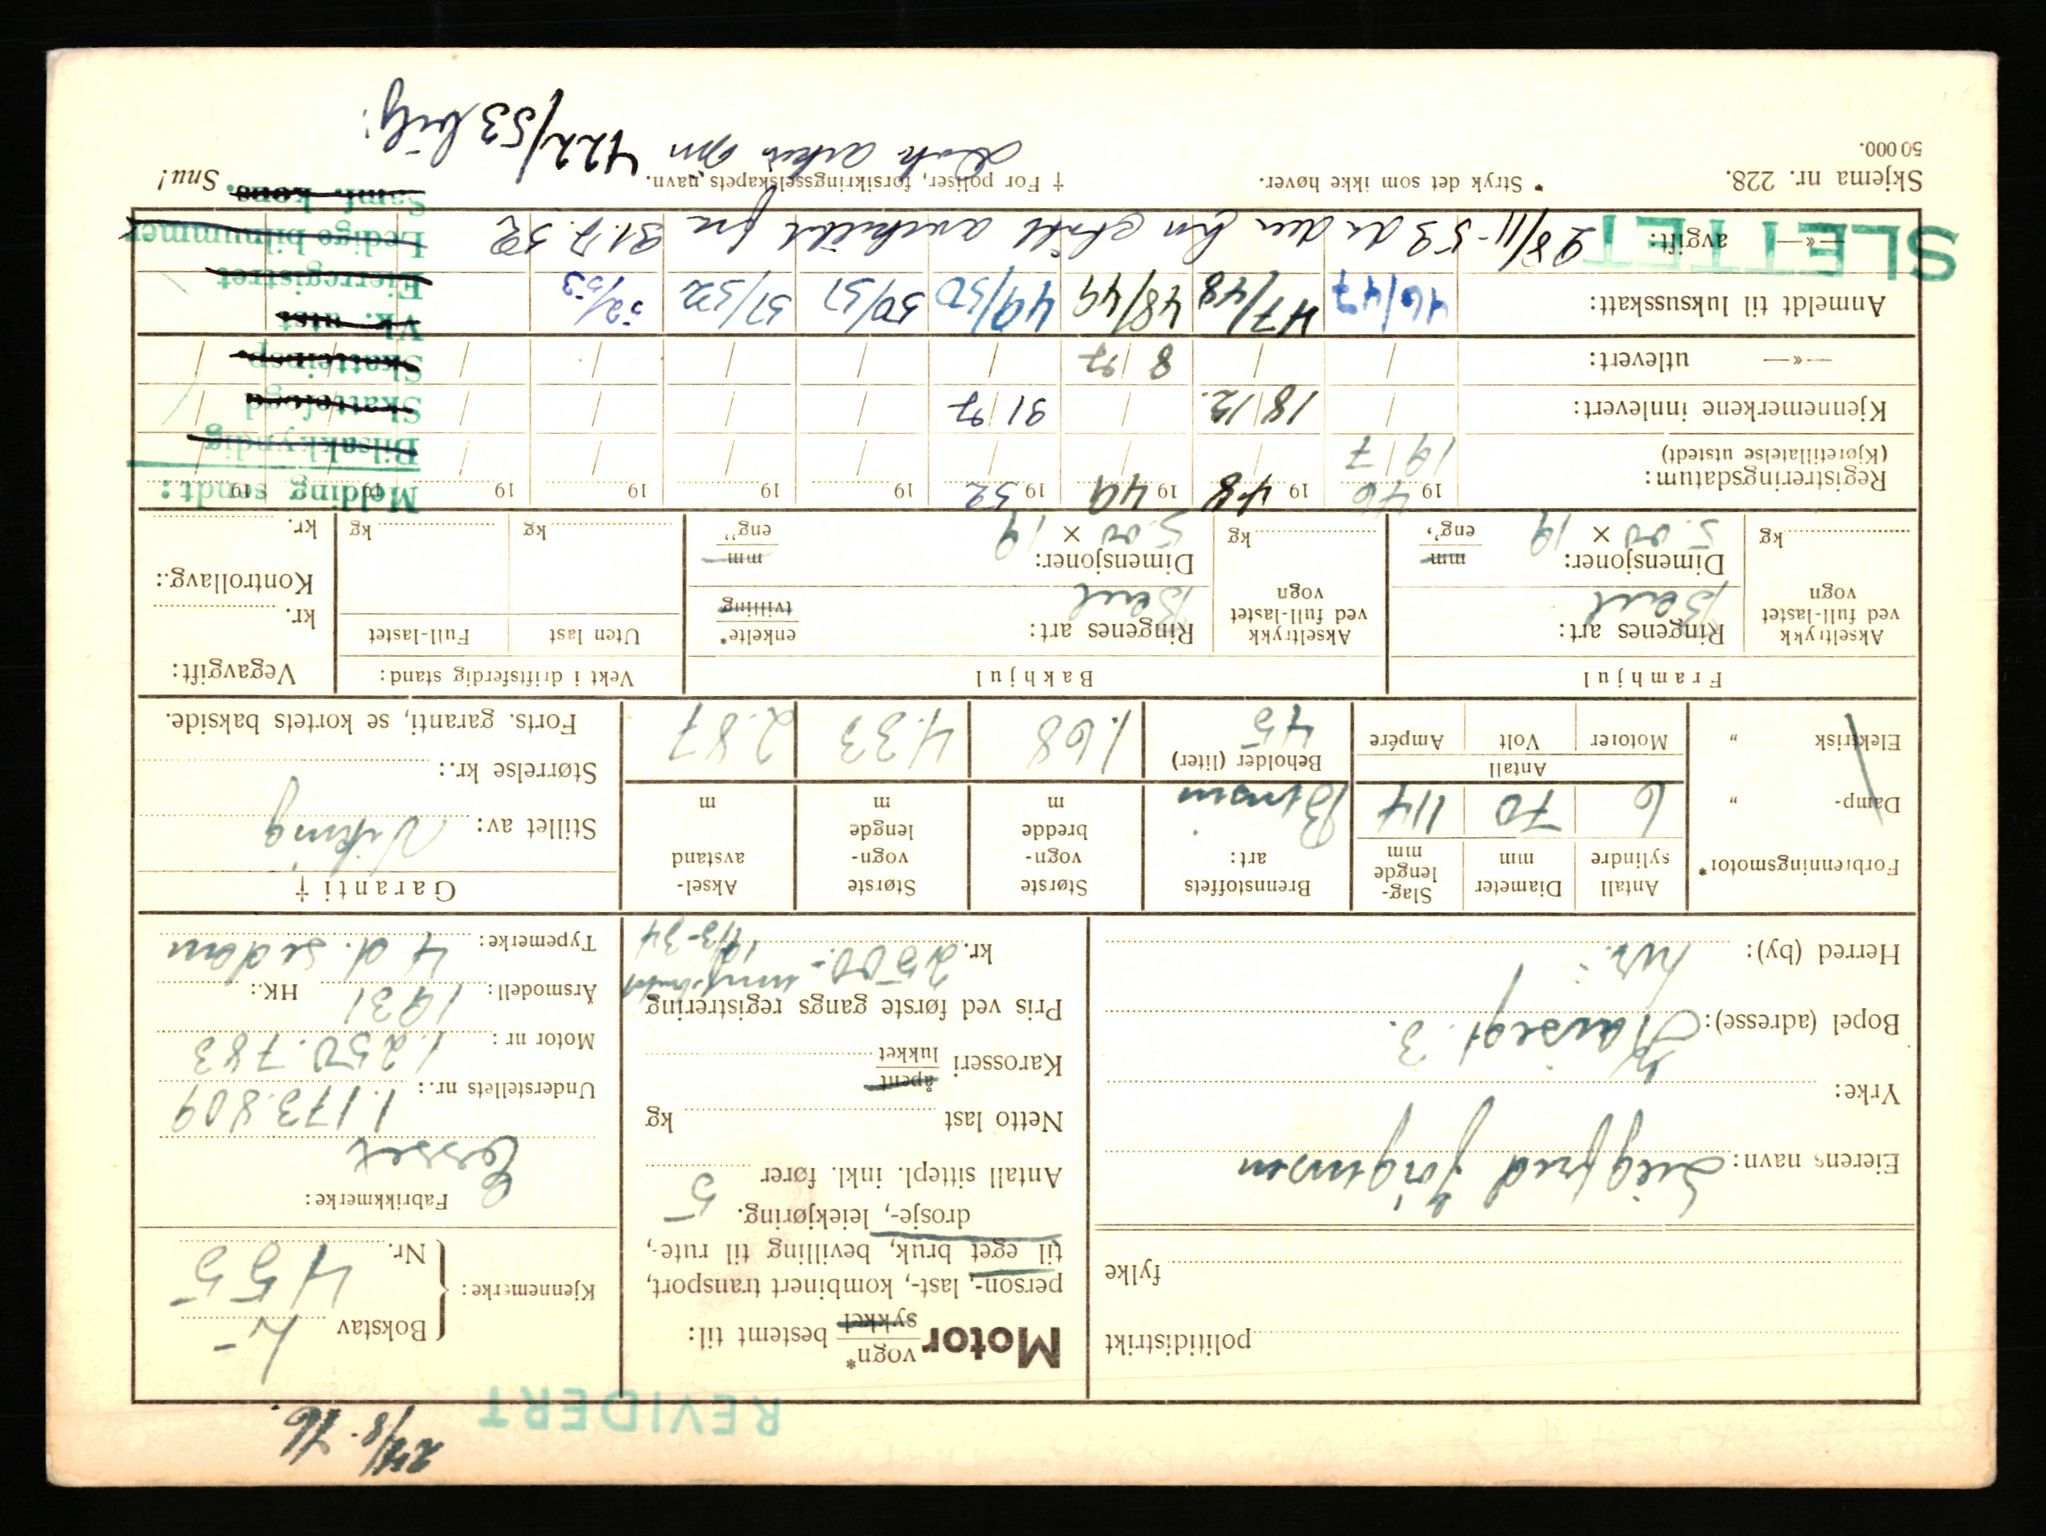 REVIDERT
27/8-46.
politidistrikt
fylke
Eierens navn: Sigfred Jörgensen
Yrke:
Bopel (adresse): 3.
Herred (by):
Motor vogn* sykkel bestemt til:
person-, last-, kombinert transport,
til eget bruk, bevilling til rute-,
drosje-, leiekjøring.
Antall sittepl. inkl. fører 5
Netto last kg
Karosseri åpent lukket
Pris ved første gangs registrering
kr. 2500.-
Kjennemerke: { Bokstav
Nr. 455
Fabrikkmerke: Essex
Understellets nr.: 1.173.809
Motor nr: 1.250.783
Årsmodell: 1931 HK.:
Typemerke: 4 d. sedan
Forbrenningsmotor*
Damp- „
Elektrisk „
Antall sylindre 6
Diameter mm 70
Slaglengde mm 114
Antall
Motorer Volt Ampére
Brennstoffets art: Bensin
Beholder (liter) 45
Største vognbredde m 1.68
Største vognlengde m 4.33
Akselavstand m 2.87
Garanti †
Stillet av: Viking
Størrelse kr.:
Forts. garanti, se kortets bakside.
Framhjul
Akseltrykk ved full-lastet vogn kg
Ringenes art:
Dimensjoner: mm
5.00 × 19 eng"
Bakhjul
Akseltrykk ved full-lastet vogn kg
Ringenes art: enkelte* tvilling
Dimensjoner: mm
5.00 × 19 eng"
Vekt i driftsferdig stand:
Uten last Full-lastet
kg kg
Vegavgift:
kr.
Kontrollavg.:
kr.
Registreringsdatum: 1946 1948 1949 1952 19 19 19 19 19 19
(Kjøretillatelse utstedt) 19/7
Kjennemerkene innlevert: 18/12. 31/7
—«— utlevert: 8/7
Anmeldt til luksusskatt: 46/47 47/48 48/49 49/50 50/51 51/52 52/53
—«— avgift:
SLETTET
28/11-53 da den har stått avskiltet fra 31.7.52
Melding sendt:
Bilsakkyndig
Skattefogd
Skatteinsp
Vk. utst
Eierregistret
Ledige bilnummer
Samf. kons.
Skjema nr. 228.
50 000.
* Stryk det som ikke høver.
† For poliser, forsikringsselskapets navn.
Snu!
422/53